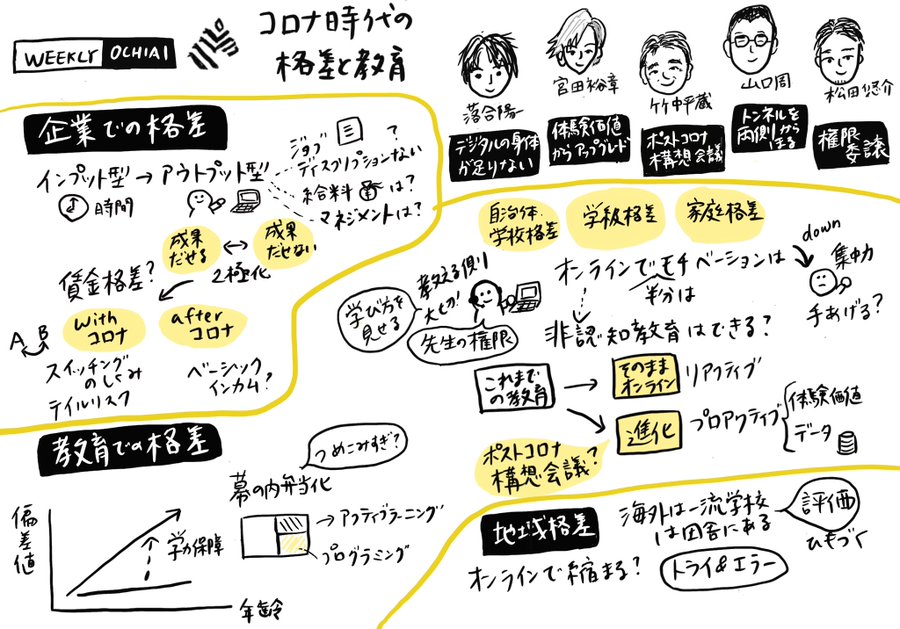 WEEKLY OCHIAI
コロナ時代の
格差と教育
落合陽一
宮田裕章
竹中平蔵
山口周
松田悠介
デジタルの身体
が足りない
体験価値
からアップグレード
ポストコロナ
構想会議
トンネルを
両側から
ほる
権限
委譲
企業での格差
インプット型→アウトプット型
時間
ジョブ
ディスクリプションない
?
給料は?
マネジメントは?
成果
だせる
↔
成果
だせない
2極化
賃金格差?
A B
with
コロナ
after
コロナ
スイッチング
のしくみ
テイルリスク
ベーシック
インカム?
自治体
学校格差
学級格差
家庭格差
オンラインでモチベーションは
半分は
down
集中力
手あげる?
学び方を
見せる
教える側り
大切!
先生の権限
非認知教育はできる?
これまで
の教育
そのまま
オンライン
リアクティブ
進化
プロアクティブ
体験価値
データ
ポストコロナ
構想会議?
教育での格差
偏差値
学力保障
年齢
つめこみすぎ?
幕の内弁当化
→アクティブラーニング
プログラミング
地域格差
海外は一流学校
は田舎にある
評価
ひもづく
オンラインで縮まる?
トライ&エラー